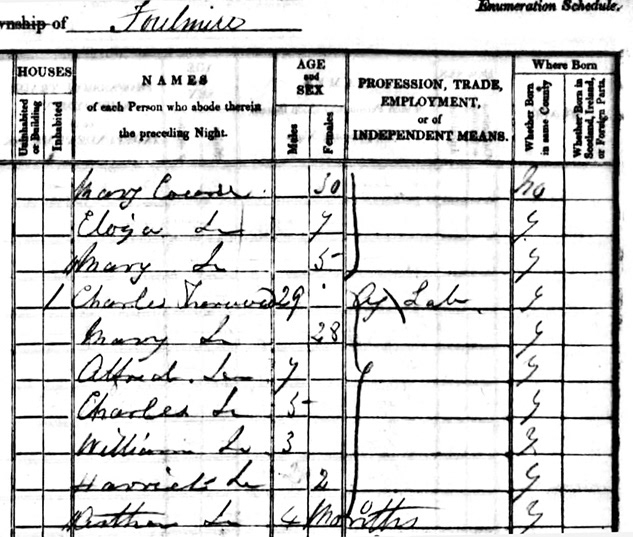 Township of Foulmire
Enumeration Schedule.
HOUSES
Uninhabited or Building
Inhabited
NAMES
of each Person who abode therein
the preceding Night.
AGE
and
SEX
Males
Females
PROFESSION, TRADE,
EMPLOYMENT,
or of
INDEPENDENT MEANS.
Where Born
Whether Born in same County
Whether Born in Scotland, Ireland, or Foreign Parts.
Mary 30 No
Eloiza Do 7 y
Mary Do 5 y
1 Charles 29 Ag Lab y
Mary Do 28 y
Alfred Do 7 y
Charles Do 5 y
William Do 3 y
Harriet Do 2 y
Do 4 Months y